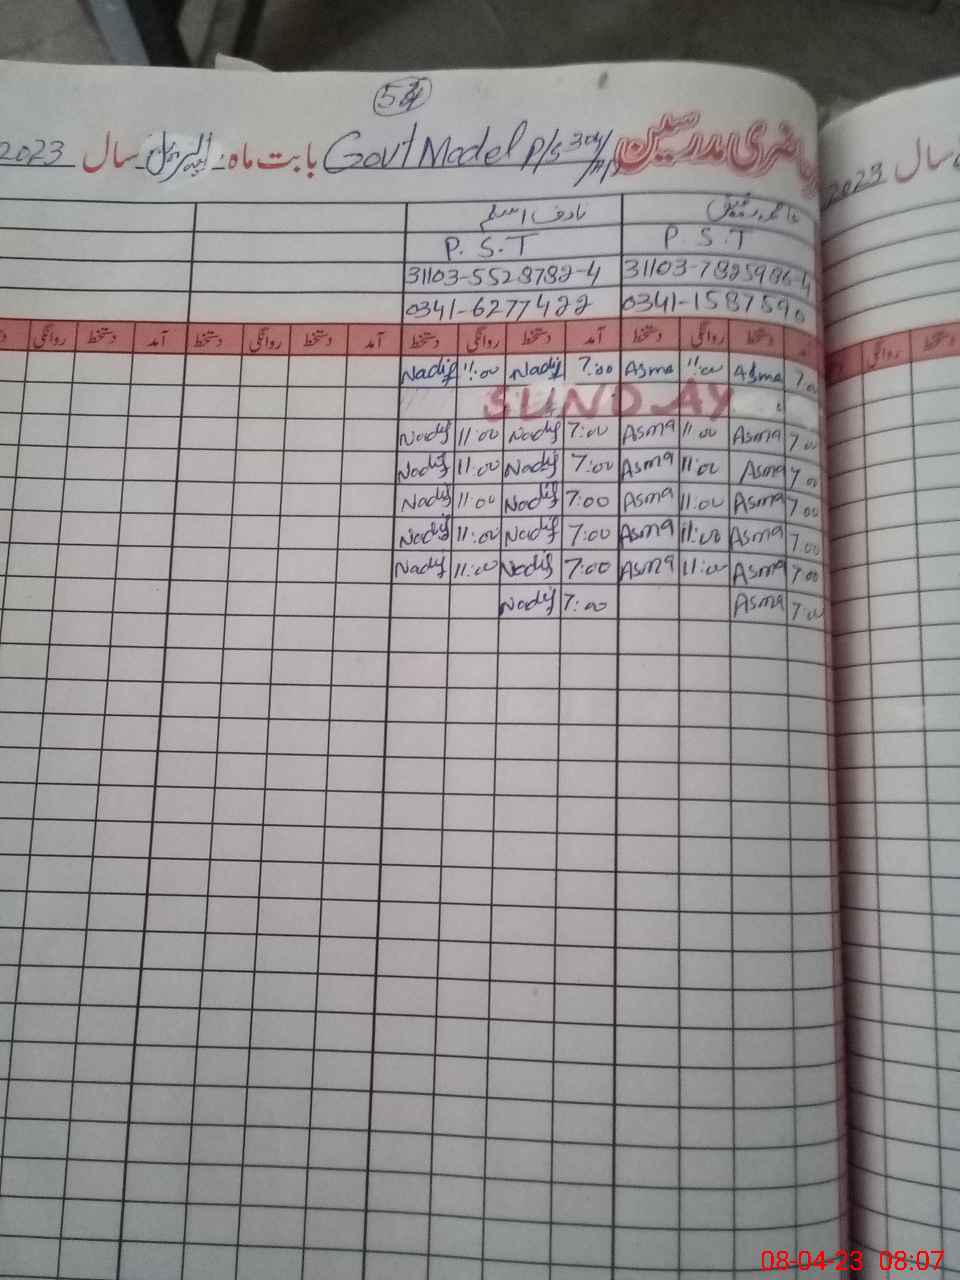 54
حاضری مدرسین Govt Model P/S بابت ماہ اپریل سال 2023
سال 2023
نادف اسلم
P.S.T P.S.T
31103-7825986-4 31103-5528782-4
0341-1587590 0341-6277422
آمد دستخط روانگی دستخط آمد دستخط روانگی دستخط آمد دستخط روانگی دستخط آمد دستخط روانگی
دستخط روانگی
7:00 Asma 11:00 Asma 7:00 Nadif 11:00 Nadif
SUNDAY
7:00 Asma 11:00 Asma 7:00 Nadif 11:00 Nadif
7:00 Asma 11:00 Asma 7:00 Nadif 11:00 Nadif
7:00 Asma 11:00 Asma 7:00 Nadif 11:00 Nadif
7:00 Asma 11:00 Asma 7:00 Nadif 11:00 Nadif
7:00 Asma 11:00 Asma 7:00 Nadif 11:00 Nadif
7:00 Asma 7:00 Nadif
08-04-23 08:07